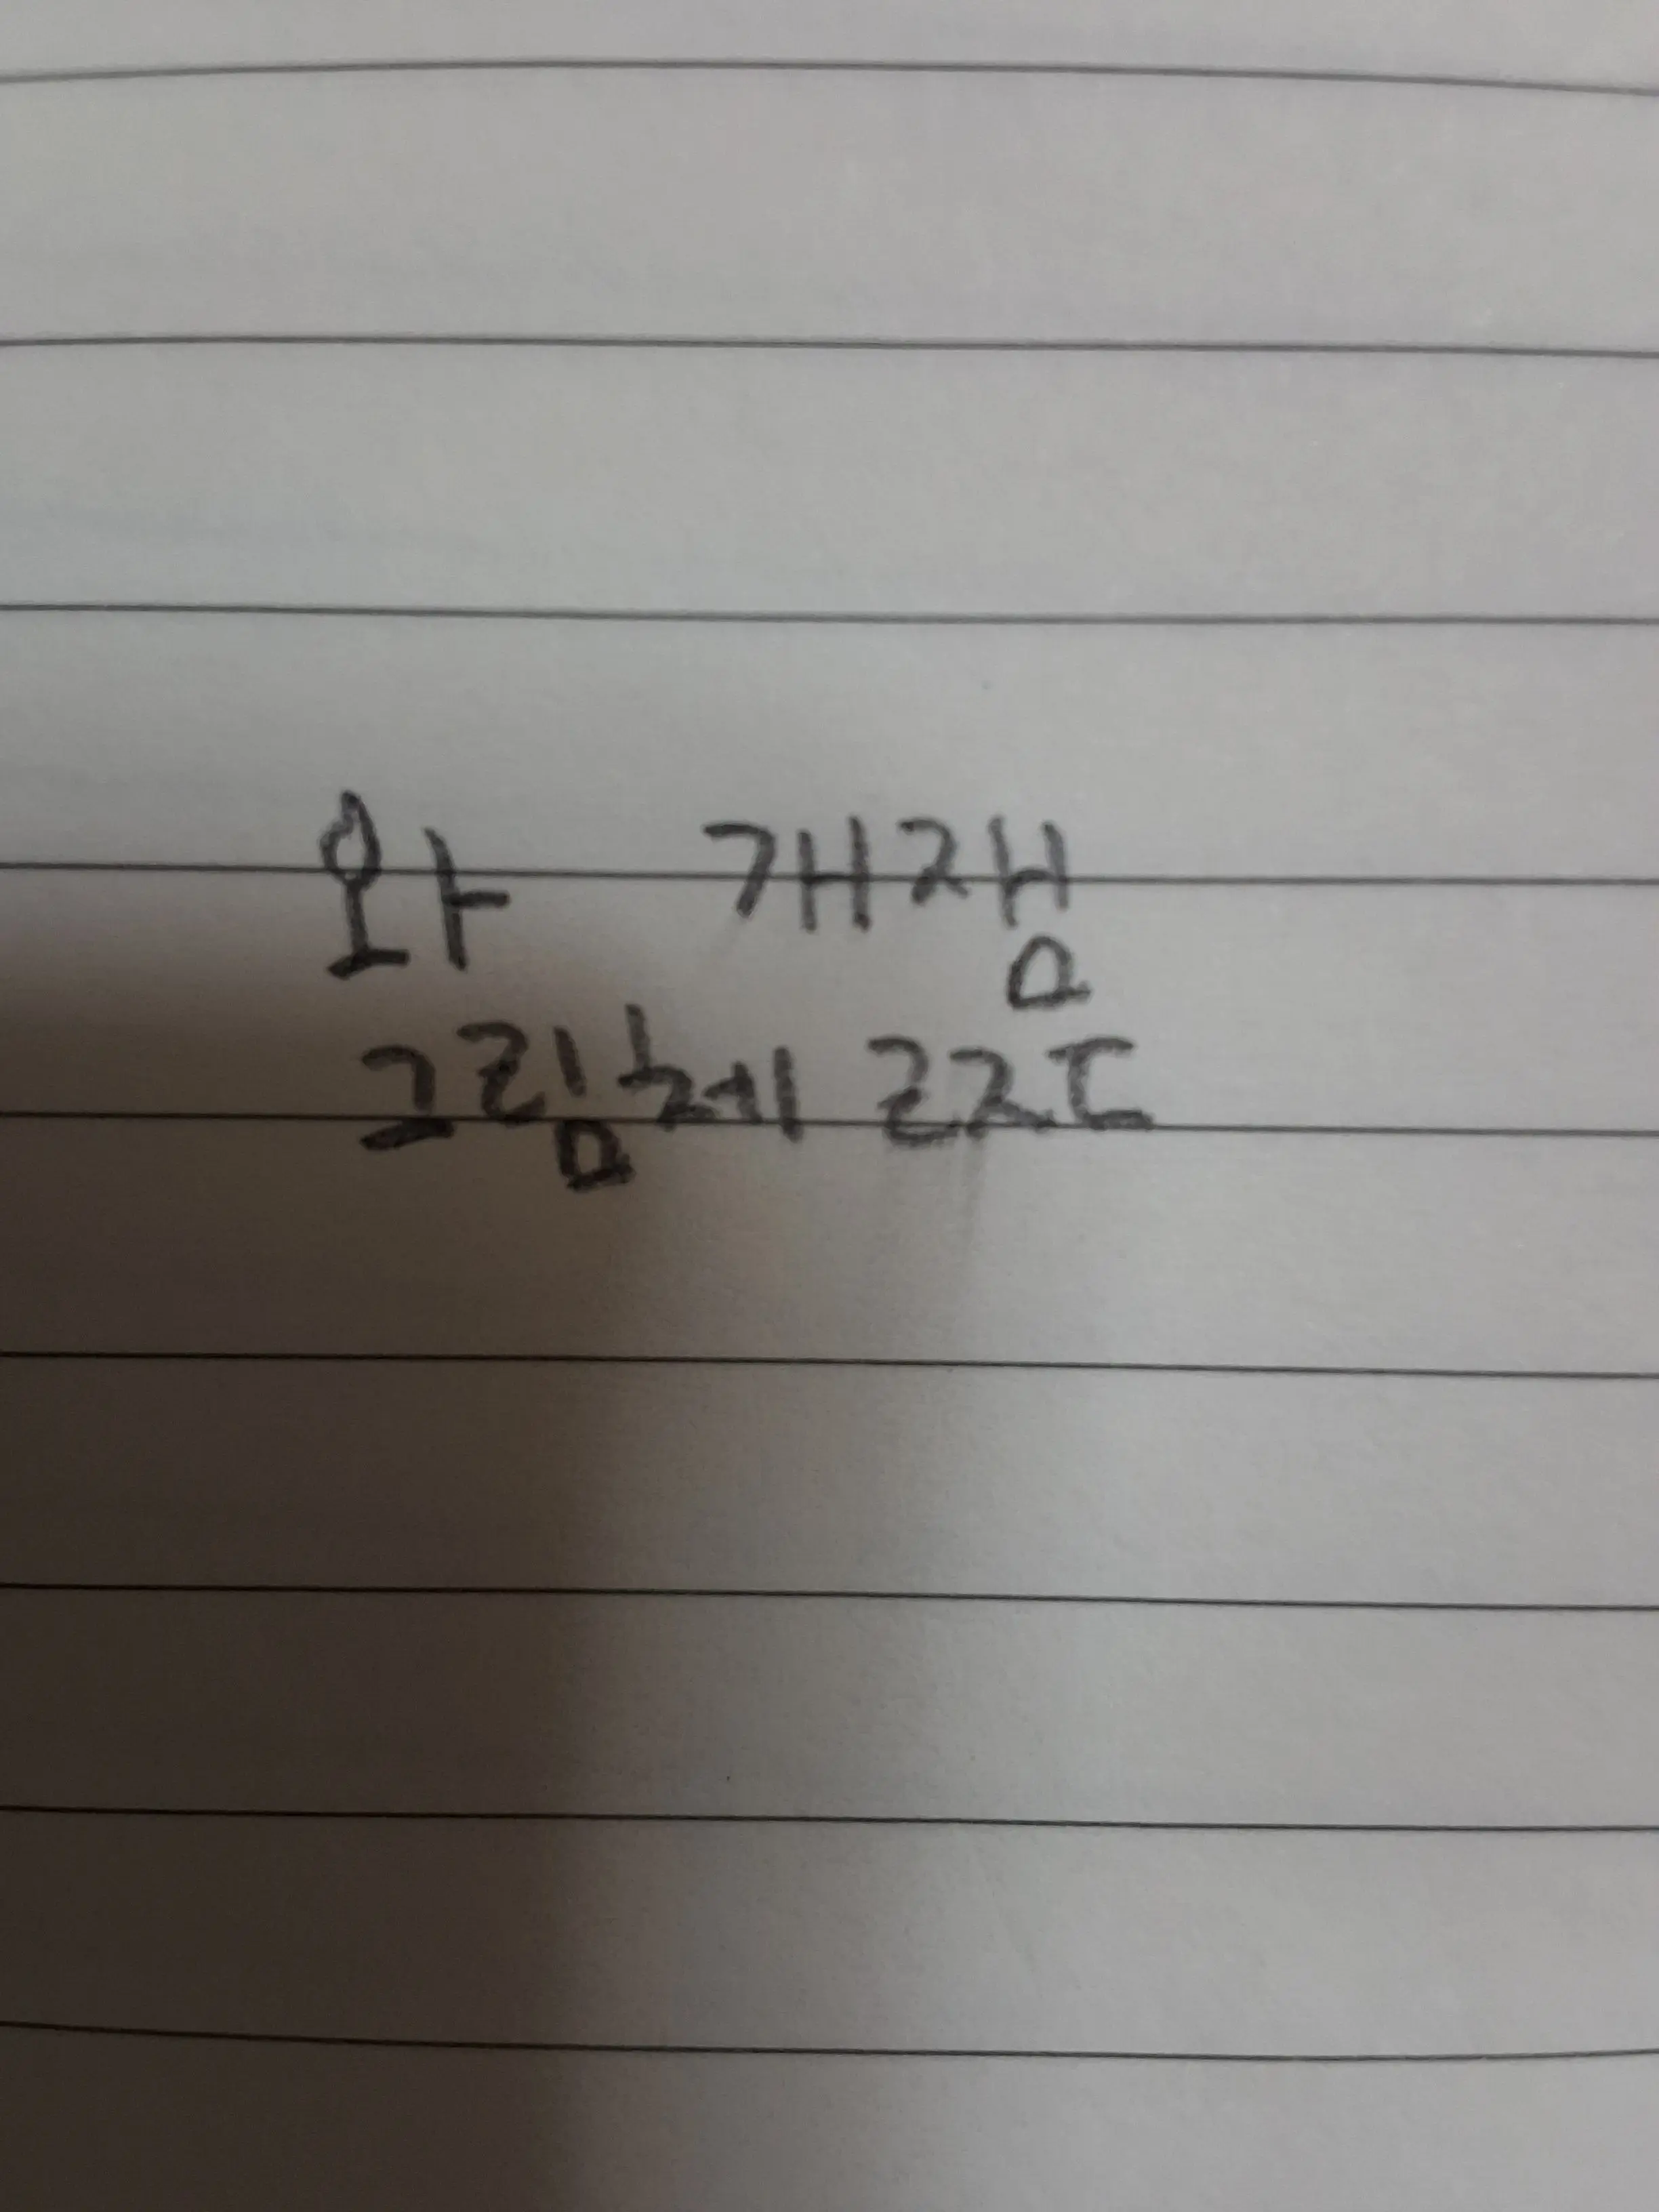 와 개잼
그림실력 ㄹㅈㄷ